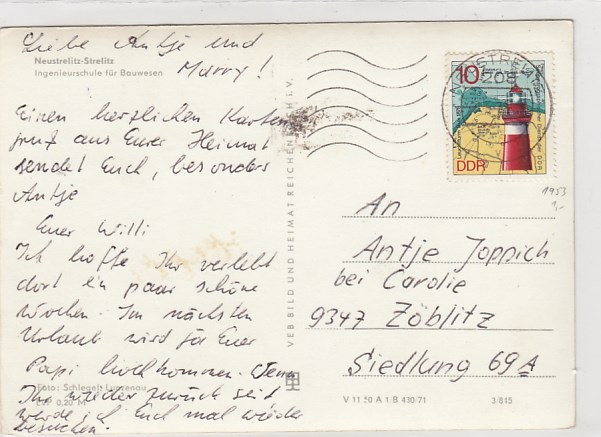 Liebe Antje und
Marry!
Neustrelitz-Strelitz
Ingenieurschule für Bauwesen
Einen herzlichen Karten
gruß aus Eurer Heimat
sendet Euch, besonders
Antje
Euer Willi
Ich hoffe Ihr verlebt
dort ein paar schöne
Wochen. Im nächsten
Urlaub wird ja Euer
Papi hinkommen. Wenn
Ihr wieder zurück seit
werde ich Euch mal wieder
besuchen.
Foto: Schlegel, Lunzenau
EVP 0,20 M
VEB BILD UND HEIMAT REICHENBACH I. V.
10
DDR
208
1953
An
Antje Joppich
bei Carolie
9347 Zöblitz
Siedlung 69A
V 11 50 A 1/B 430/71
3/815